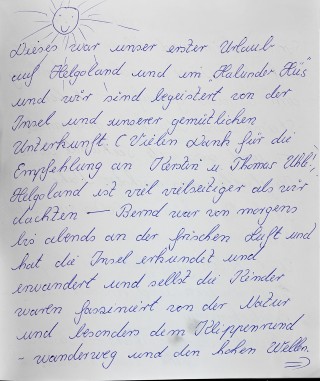 Dieses war unser erster Urlaub
auf Helgoland und im „Halunder Hüs"
und wir sind begeistert von der
Insel und unserer gemütlichen
Unterkunft. (Vielen Dank für die
Empfehlung an Kerstin u. Thomas
Helgoland ist viel vielseitiger als wir
dachten — Bernd war von morgens
bis abends an der frischen Luft und
hat die Insel erkundet und
erwandert und selbst die Kinder
waren fasziniert von der Natur
und besonders dem Klippenrund
- wanderweg und den hohen Wellen.